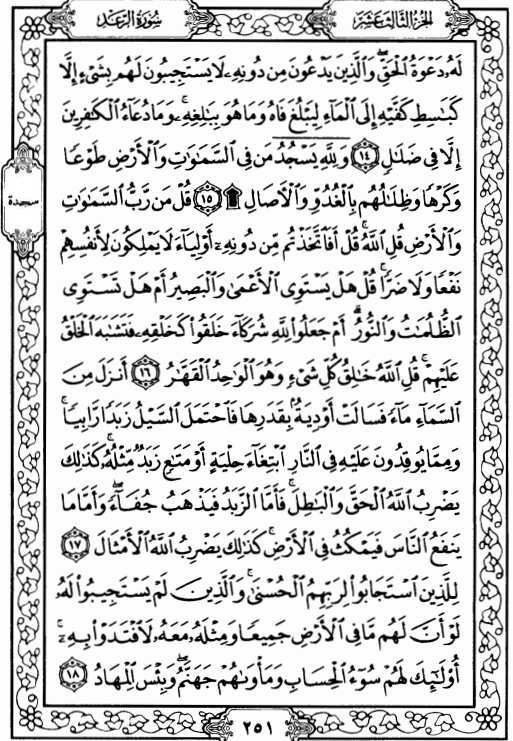 الجزء الثالث عشر
سورة الرعد
لَهُۥ دَعْوَةُ ٱلْحَقِّ ۖ وَٱلَّذِينَ يَدْعُونَ مِن دُونِهِۦ لَا يَسْتَجِيبُونَ لَهُم بِشَىْءٍ إِلَّا
كَبَٰسِطِ كَفَّيْهِ إِلَى ٱلْمَآءِ لِيَبْلُغَ فَاهُ وَمَا هُوَ بِبَٰلِغِهِۦ ۚ وَمَا دُعَآءُ ٱلْكَٰفِرِينَ
إِلَّا فِى ضَلَٰلٍ ١٤ وَلِلَّهِ يَسْجُدُ مَن فِى ٱلسَّمَٰوَٰتِ وَٱلْأَرْضِ طَوْعًا
وَكَرْهًا وَظِلَٰلُهُم بِٱلْغُدُوِّ وَٱلْـَٔاصَالِ ۩ ١٥ قُلْ مَن رَّبُّ ٱلسَّمَٰوَٰتِ
سجدة
وَٱلْأَرْضِ قُلِ ٱللَّهُ ۚ قُلْ أَفَٱتَّخَذْتُم مِّن دُونِهِۦٓ أَوْلِيَآءَ لَا يَمْلِكُونَ لِأَنفُسِهِمْ
نَفْعًا وَلَا ضَرًّا ۚ قُلْ هَلْ يَسْتَوِى ٱلْأَعْمَىٰ وَٱلْبَصِيرُ أَمْ هَلْ تَسْتَوِى
ٱلظُّلُمَٰتُ وَٱلنُّورُ ۗ أَمْ جَعَلُوا۟ لِلَّهِ شُرَكَآءَ خَلَقُوا۟ كَخَلْقِهِۦ فَتَشَٰبَهَ ٱلْخَلْقُ
عَلَيْهِمْ ۚ قُلِ ٱللَّهُ خَٰلِقُ كُلِّ شَىْءٍ وَهُوَ ٱلْوَٰحِدُ ٱلْقَهَّٰرُ ١٦ أَنزَلَ مِنَ
ٱلسَّمَآءِ مَآءً فَسَالَتْ أَوْدِيَةٌۢ بِقَدَرِهَا فَٱحْتَمَلَ ٱلسَّيْلُ زَبَدًا رَّابِيًا ۚ
وَمِمَّا يُوقِدُونَ عَلَيْهِ فِى ٱلنَّارِ ٱبْتِغَآءَ حِلْيَةٍ أَوْ مَتَٰعٍ زَبَدٌ مِّثْلُهُۥ ۚ كَذَٰلِكَ
يَضْرِبُ ٱللَّهُ ٱلْحَقَّ وَٱلْبَٰطِلَ ۚ فَأَمَّا ٱلزَّبَدُ فَيَذْهَبُ جُفَآءً ۖ وَأَمَّا مَا
يَنفَعُ ٱلنَّاسَ فَيَمْكُثُ فِى ٱلْأَرْضِ ۚ كَذَٰلِكَ يَضْرِبُ ٱللَّهُ ٱلْأَمْثَالَ ١٧
لِلَّذِينَ ٱسْتَجَابُوا۟ لِرَبِّهِمُ ٱلْحُسْنَىٰ ۚ وَٱلَّذِينَ لَمْ يَسْتَجِيبُوا۟ لَهُۥ
لَوْ أَنَّ لَهُم مَّا فِى ٱلْأَرْضِ جَمِيعًا وَمِثْلَهُۥ مَعَهُۥ لَٱفْتَدَوْا۟ بِهِۦٓ ۚ
أُو۟لَٰٓئِكَ لَهُمْ سُوٓءُ ٱلْحِسَابِ وَمَأْوَىٰهُمْ جَهَنَّمُ ۖ وَبِئْسَ ٱلْمِهَادُ ١٨
٢٥١